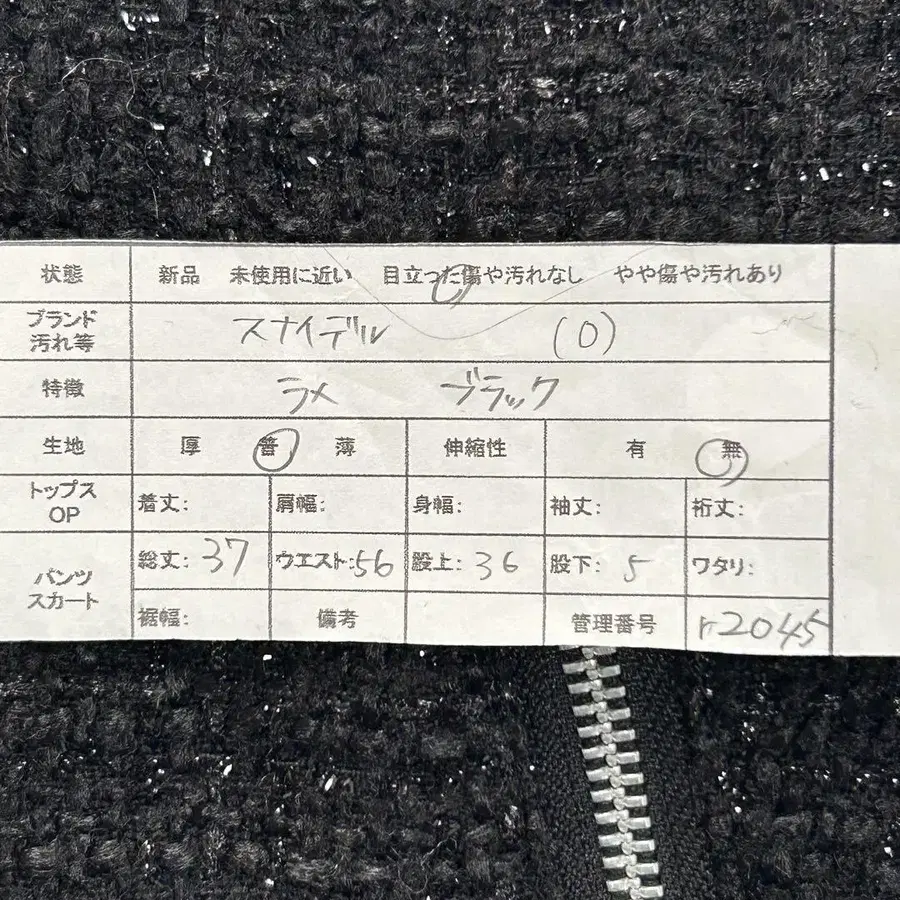 状態 新品 未使用に近い 目立った傷や汚れなし やや傷や汚れあり
ブランド
汚れ等 スナイデル (0)
特徴 ラメ ブラック
生地 厚 普 薄 伸縮性 有 無
トップス
OP 着丈: 肩幅: 身幅: 袖丈: 裄丈:
パンツ
スカート 総丈: 37 ウエスト: 56 股上: 36 股下: 5 ワタリ:
裾幅: 備考 管理番号 r2045